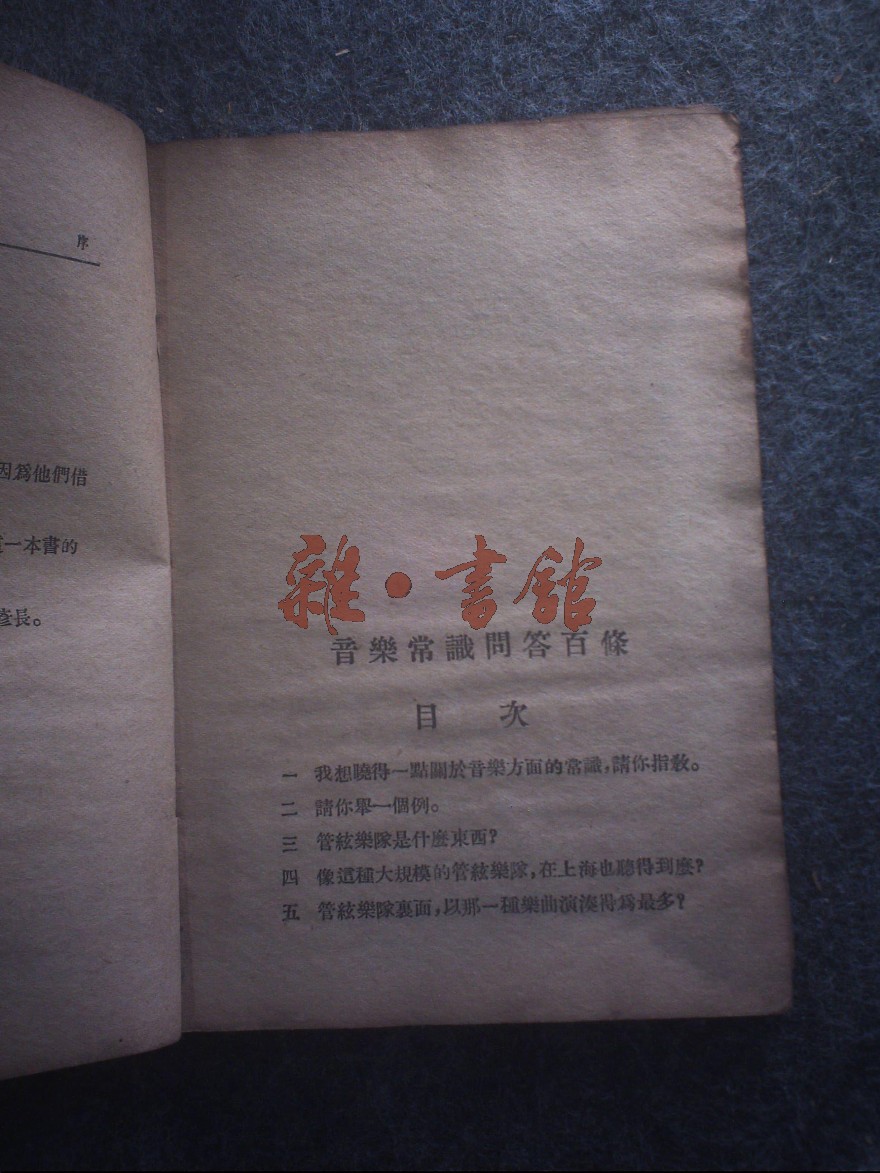 序
因爲他們借
一本書的
長。
雜·書館
音樂常識問答百條
目 次
一 我想曉得一點關於音樂方面的常識,請你指敎。
二 請你舉一個例。
三 管絃樂隊是什麽東西?
四 像這種大規模的管絃樂隊,在上海也聽得到麽?
五 管絃樂隊裏面,以那一種樂曲演湊得爲最多?